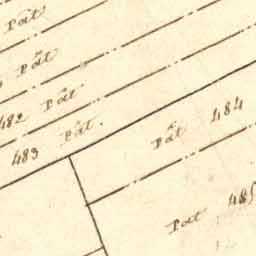 Pât
Pât
482 Pât
483 Pât.
Pât 484
Pat 485